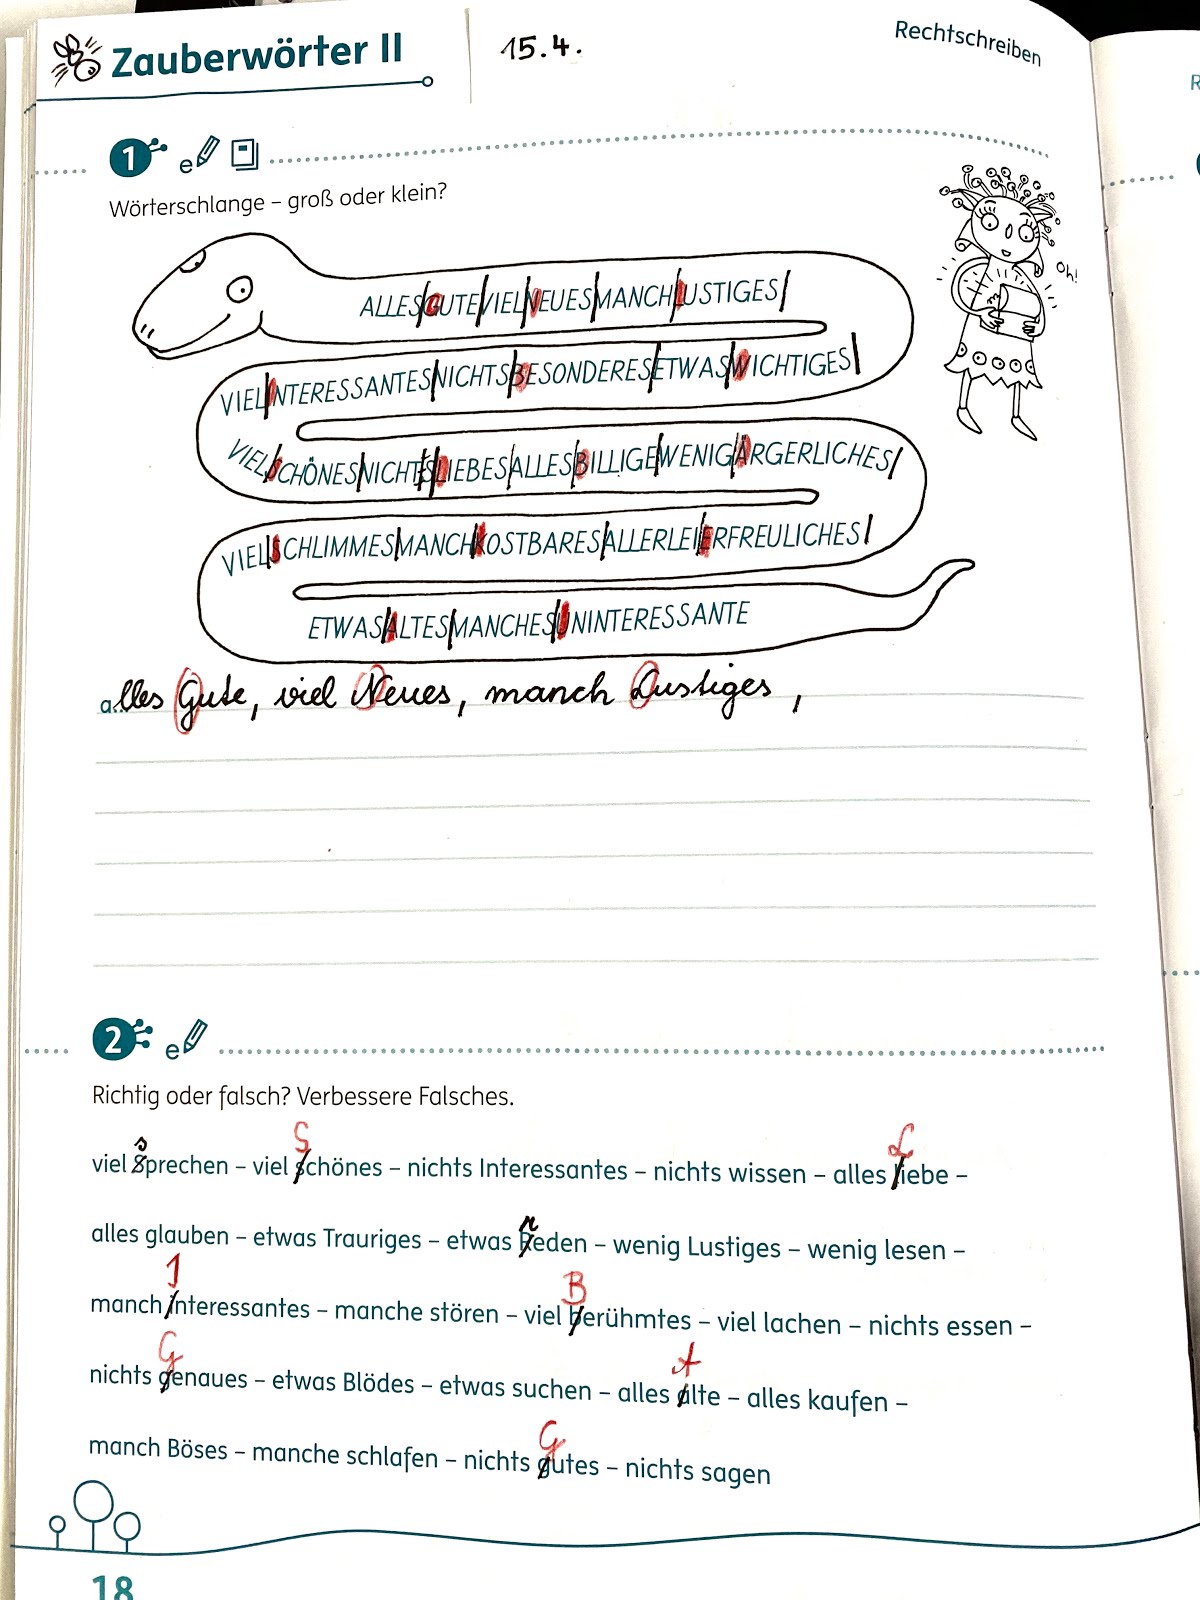 Zauberwörter II
15.4.
Rechtschreiben
1
e
Wörterschlange – groß oder klein?
Oh!
ALLESGUTEVIELNEUESMANCHLUSTIGES
VIELINTERESSANTESNICHTSBESONDERESETWASWICHTIGES
VIELSCHÖNESNICHTSLIEBESALLESBILLIGEWENIGÄRGERLICHES
VIELSCHLIMMESMANCHKOSTBARESALLERLEIERFREULICHES
ETWASALTESMANCHESUNINTERESSANTE
alles Gute, viel Neues, manch Lustiges,
2
e
Richtig oder falsch? Verbessere Falsches.
s S L
viel Sprechen – viel schönes – nichts Interessantes – nichts wissen – alles liebe –
r
alles glauben – etwas Trauriges – etwas Reden – wenig Lustiges – wenig lesen –
I B
manch interessantes – manche stören – viel berühmtes – viel lachen – nichts essen –
G A
nichts genaues – etwas Blödes – etwas suchen – alles alte – alles kaufen –
G
manch Böses – manche schlafen – nichts gutes – nichts sagen
18
R